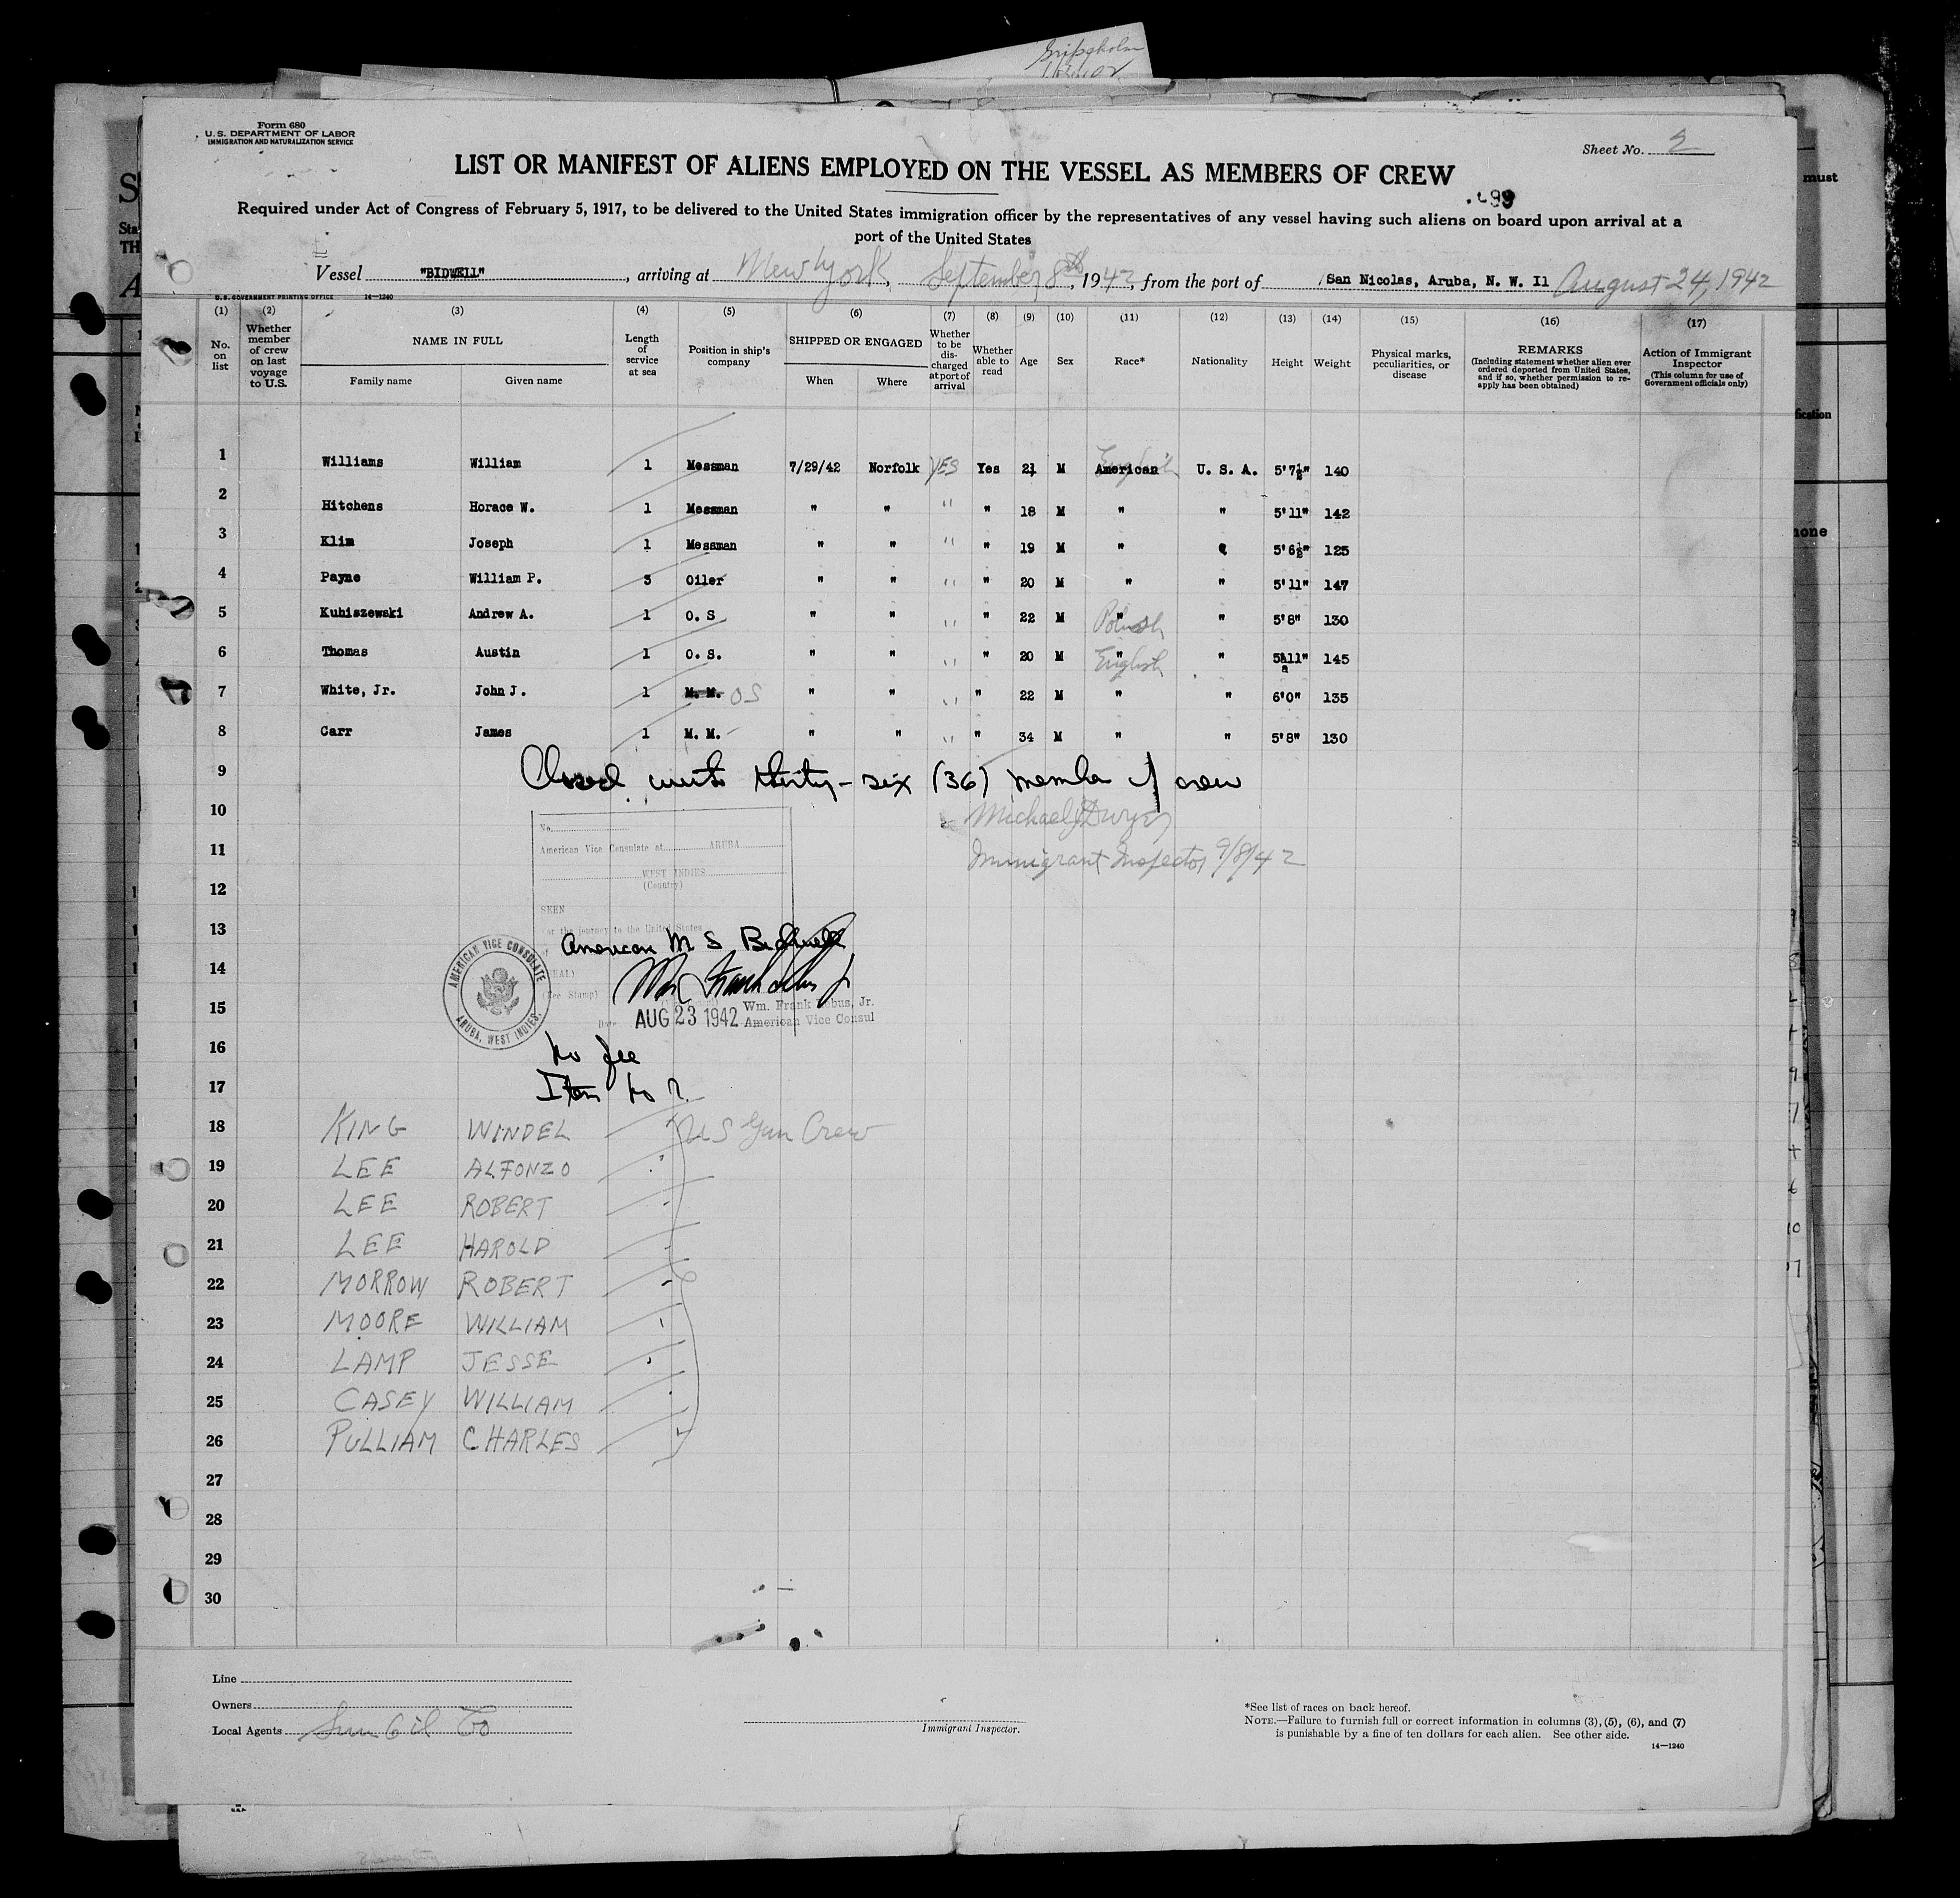 Gripsholm
Form 680
U.S. DEPARTMENT OF LABOR
IMMIGRATION AND NATURALIZATION SERVICE
Sheet No. 2
LIST OR MANIFEST OF ALIENS EMPLOYED ON THE VESSEL AS MEMBERS OF CREW
Required under Act of Congress of February 5, 1917, to be delivered to the United States immigration officer by the representatives of any vessel having such aliens on board upon arrival at a
port of the United States
Vessel "BIDWELL", arriving at New York, September 8th, 1942, from the port of San Nicolas, Aruba, N. W. II August 24, 1942
U.S. GOVERNMENT PRINTING OFFICE 14-1240
(1) (2) (3) (4) (5) (6) (7) (8) (9) (10) (11) (12) (13) (14) (15) (16) (17)
No. on list
Whether member of crew on last voyage to U.S.
NAME IN FULL
Family name Given name
Length of service at sea
Position in ship's company
SHIPPED OR ENGAGED
When Where
Whether to be discharged at port of arrival
Whether able to read
Age
Sex
Race*
Nationality
Height
Weight
Physical marks, peculiarities, or disease
REMARKS
(Including statement whether alien ever ordered deported from United States, and if so, whether permission to reapply has been obtained)
Action of Immigrant Inspector
(This column for use of Government officials only)
1 Williams William 1 Messman 7/29/42 Norfolk YES Yes 21 M American English U. S. A. 5'7½" 140
2 Hitchens Horace W. 1 Messman " " " " 18 M " " 5'11" 142
3 Klim Joseph 1 Messman " " " " 19 M " " 5'6½" 125
4 Payne William P. 3 Oiler " " " " 20 M " " 5'11" 147
5 Kubiszewski Andrew A. 1 O. S " " " " 22 M " Polish " 5'8" 130
6 Thomas Austin 1 O. S. " " " " 20 M " English " 5'11" 145
7 White, Jr. John J. 1 M. M. OS " " " " 22 M " " 6'0" 135
8 Carr James 1 M. M. " " " " 34 M " " 5'8" 130
9 Closed with thirty-six (36) member of crew
10 Michael J Dwyer
11 Immigrant Inspector 9/8/42
12
13
14
15
16
17
No.
American Vice Consulate at ARUBA
WEST INDIES
(Country)
SEEN
for the journey to the United States
American M S Bidwell
(SEAL)
(Fee Stamp)
Wm. Frank Debus, Jr.
Date AUG 23 1942 American Vice Consul
AMERICAN VICE CONSULATE
ARUBA, WEST INDIES.
No fee
Item No 7.
18 KING WINDEL " US Gun Crew
19 LEE ALFONZO "
20 LEE ROBERT
21 LEE HAROLD
22 MORROW ROBERT
23 MOORE WILLIAM
24 LAMP JESSE
25 CASEY WILLIAM
26 PULLIAM CHARLES
27
28
29
30
Line
Owners
Local Agents Sun Oil Co
Immigrant Inspector.
*See list of races on back hereof.
NOTE.—Failure to furnish full or correct information in columns (3), (5), (6), and (7)
is punishable by a fine of ten dollars for each alien. See other side.
14-1240